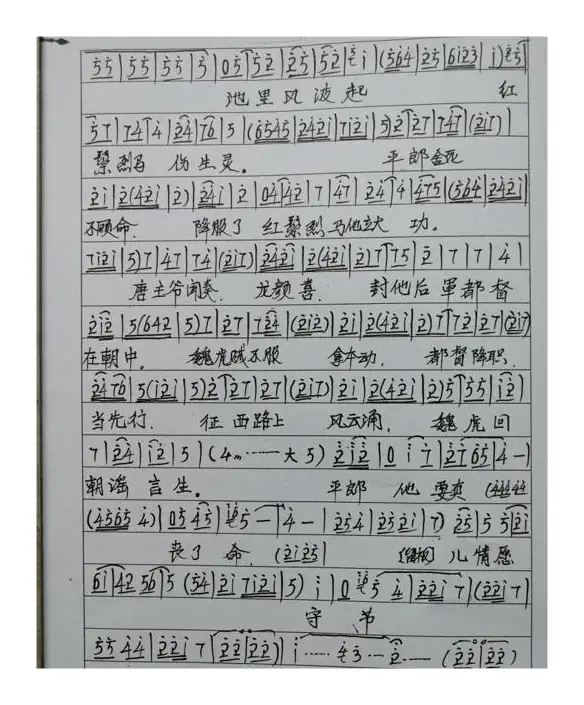 5 5|5 5|5 5|5|0 5|5 2|2 5|5 2|5 i|(5 6 4|2 5|6 i 2 3|i)5|
池里风波起 红
5 7|7 4|4|2 4|7 6|5|(6 5 4 5|2 4 2 i|7 i 2 i|5)2|2 7|7 4 7|(2 i 7)|
鬃烈马 伤生灵。 平郎
2 i|2(4 2 i|2)|2 4 i|2|0 4|4 2|7|4 7|2 4|4|4 7 5|(5 6 4|2 4 2 i|
不顾命. 降服了 红鬃烈马他立大 功。
7 i 2 i|5)7|4 7|7 4|(2 i 7)|2 4 2 i|2(4 2 i|2)7|7 5|2|7|7|4|
唐主爷闻奏. 龙颜喜. 封他后軍都督
2 i 2|5(6 4 2|5)7|2 7|7 2 4|(2 i 2)|2 i|2(4 2 i|2)7|7 2|2 7|(2 i 7)
在朝中. 魏虎贼不服 拿本动. 都督降职
2 4 7 6|5(i 2 i|5)2|2 7|2 7|(2 i 7)|2 i|2(4 2 i|2)5|5 5|i 2|
当先行. 征西路上 风云涌, 魏虎回
7|2 4|i 2|5|(4m……大 5) 2 i 2|0 i 7|2 7 6 5|4 -|
朝谣言生。 平郎 他 要爽 (4444
(4 5 6 5 4)|0 5 4 5|5 -|4 -|2 5 4|2 5 2 i|7)2 5|5 5|2 i|
丧了 命. (2 i 2 5| 儿情愿
6 i|4 2 5 6|5(5 4|2 i 7 i 2 i|5) i|0 5 4|2 2 i 7|(2 2 i 7|
守 节
5 5 4 4|2 2 i 7|2 2|2 2)|i …… 4 3 … 2 …… (2 2|2 2)